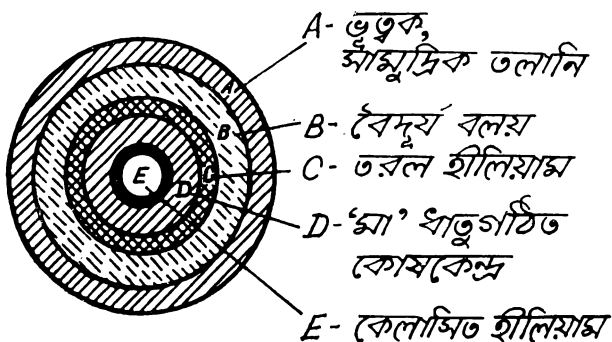 A- ভূত্বক,
সামুদ্রিক তলানি
B- বৈদূর্য বলয়
C- তরল হীলিয়াম
D- 'মা' ধাতুগঠিত
কোষকেন্দ্র
E- কেলাসিত হীলিয়াম
A
B
C
D
E